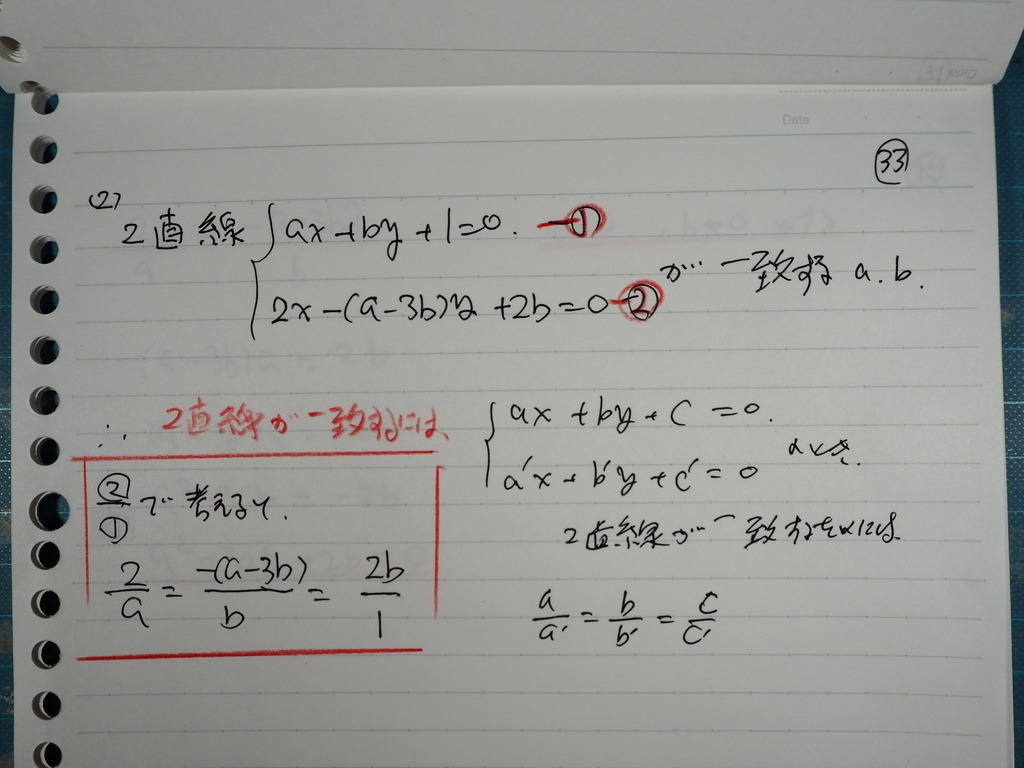 Date
㉝
(2)
2直線 { ax+by+1=0. ―①
2x-(a-3b)y+2b=0 ―② が一致する a.b.
∴ 2直線が一致するには、
②/① で考えると.
2/a = -(a-3b)/b = 2b/1
{ ax+by+c=0.
a'x+b'y+c'=0 のとき.
2直線が一致するためには
a/a' = b/b' = c/c'